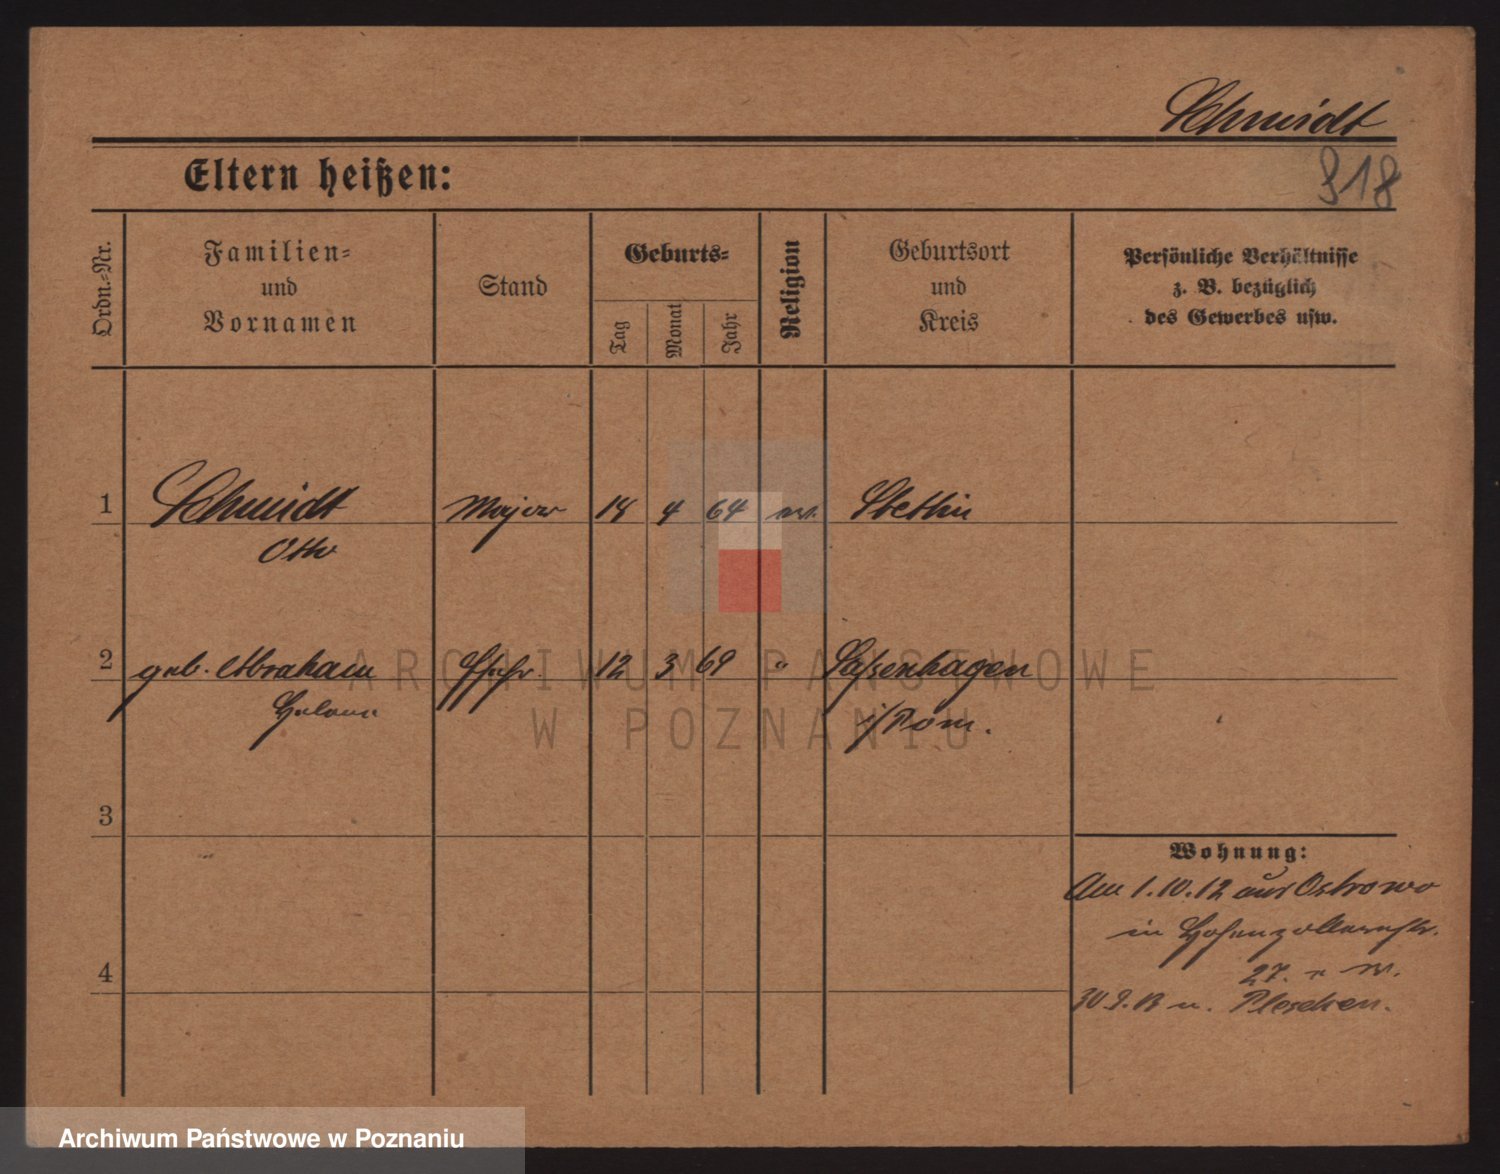 Schmidt
318
Eltern heißen:
Ordn.-Nr.
Familien-
und
Vornamen
Stand
Geburts-
Tag
Monat
Jahr
Religion
Geburtsort
und
Kreis
Persönliche Verhältnisse
z. B. bezüglich
des Gewerbes usw.
1 Schmidt Major 14 4 64 ev. Stettin
Otto
2 geb. Abraham Ehefr. 12 3 69 " Sassenhagen
Helene i/Pom.
3
4
Wohnung:
Am 1.10.12 aus Ostrowo
in Hohenzollernstr.
27.
30.9.13 n. Pleschen.
ARCHIWUM PAŃSTWOWE
W POZNANIU
Archiwum Państwowe w Poznaniu